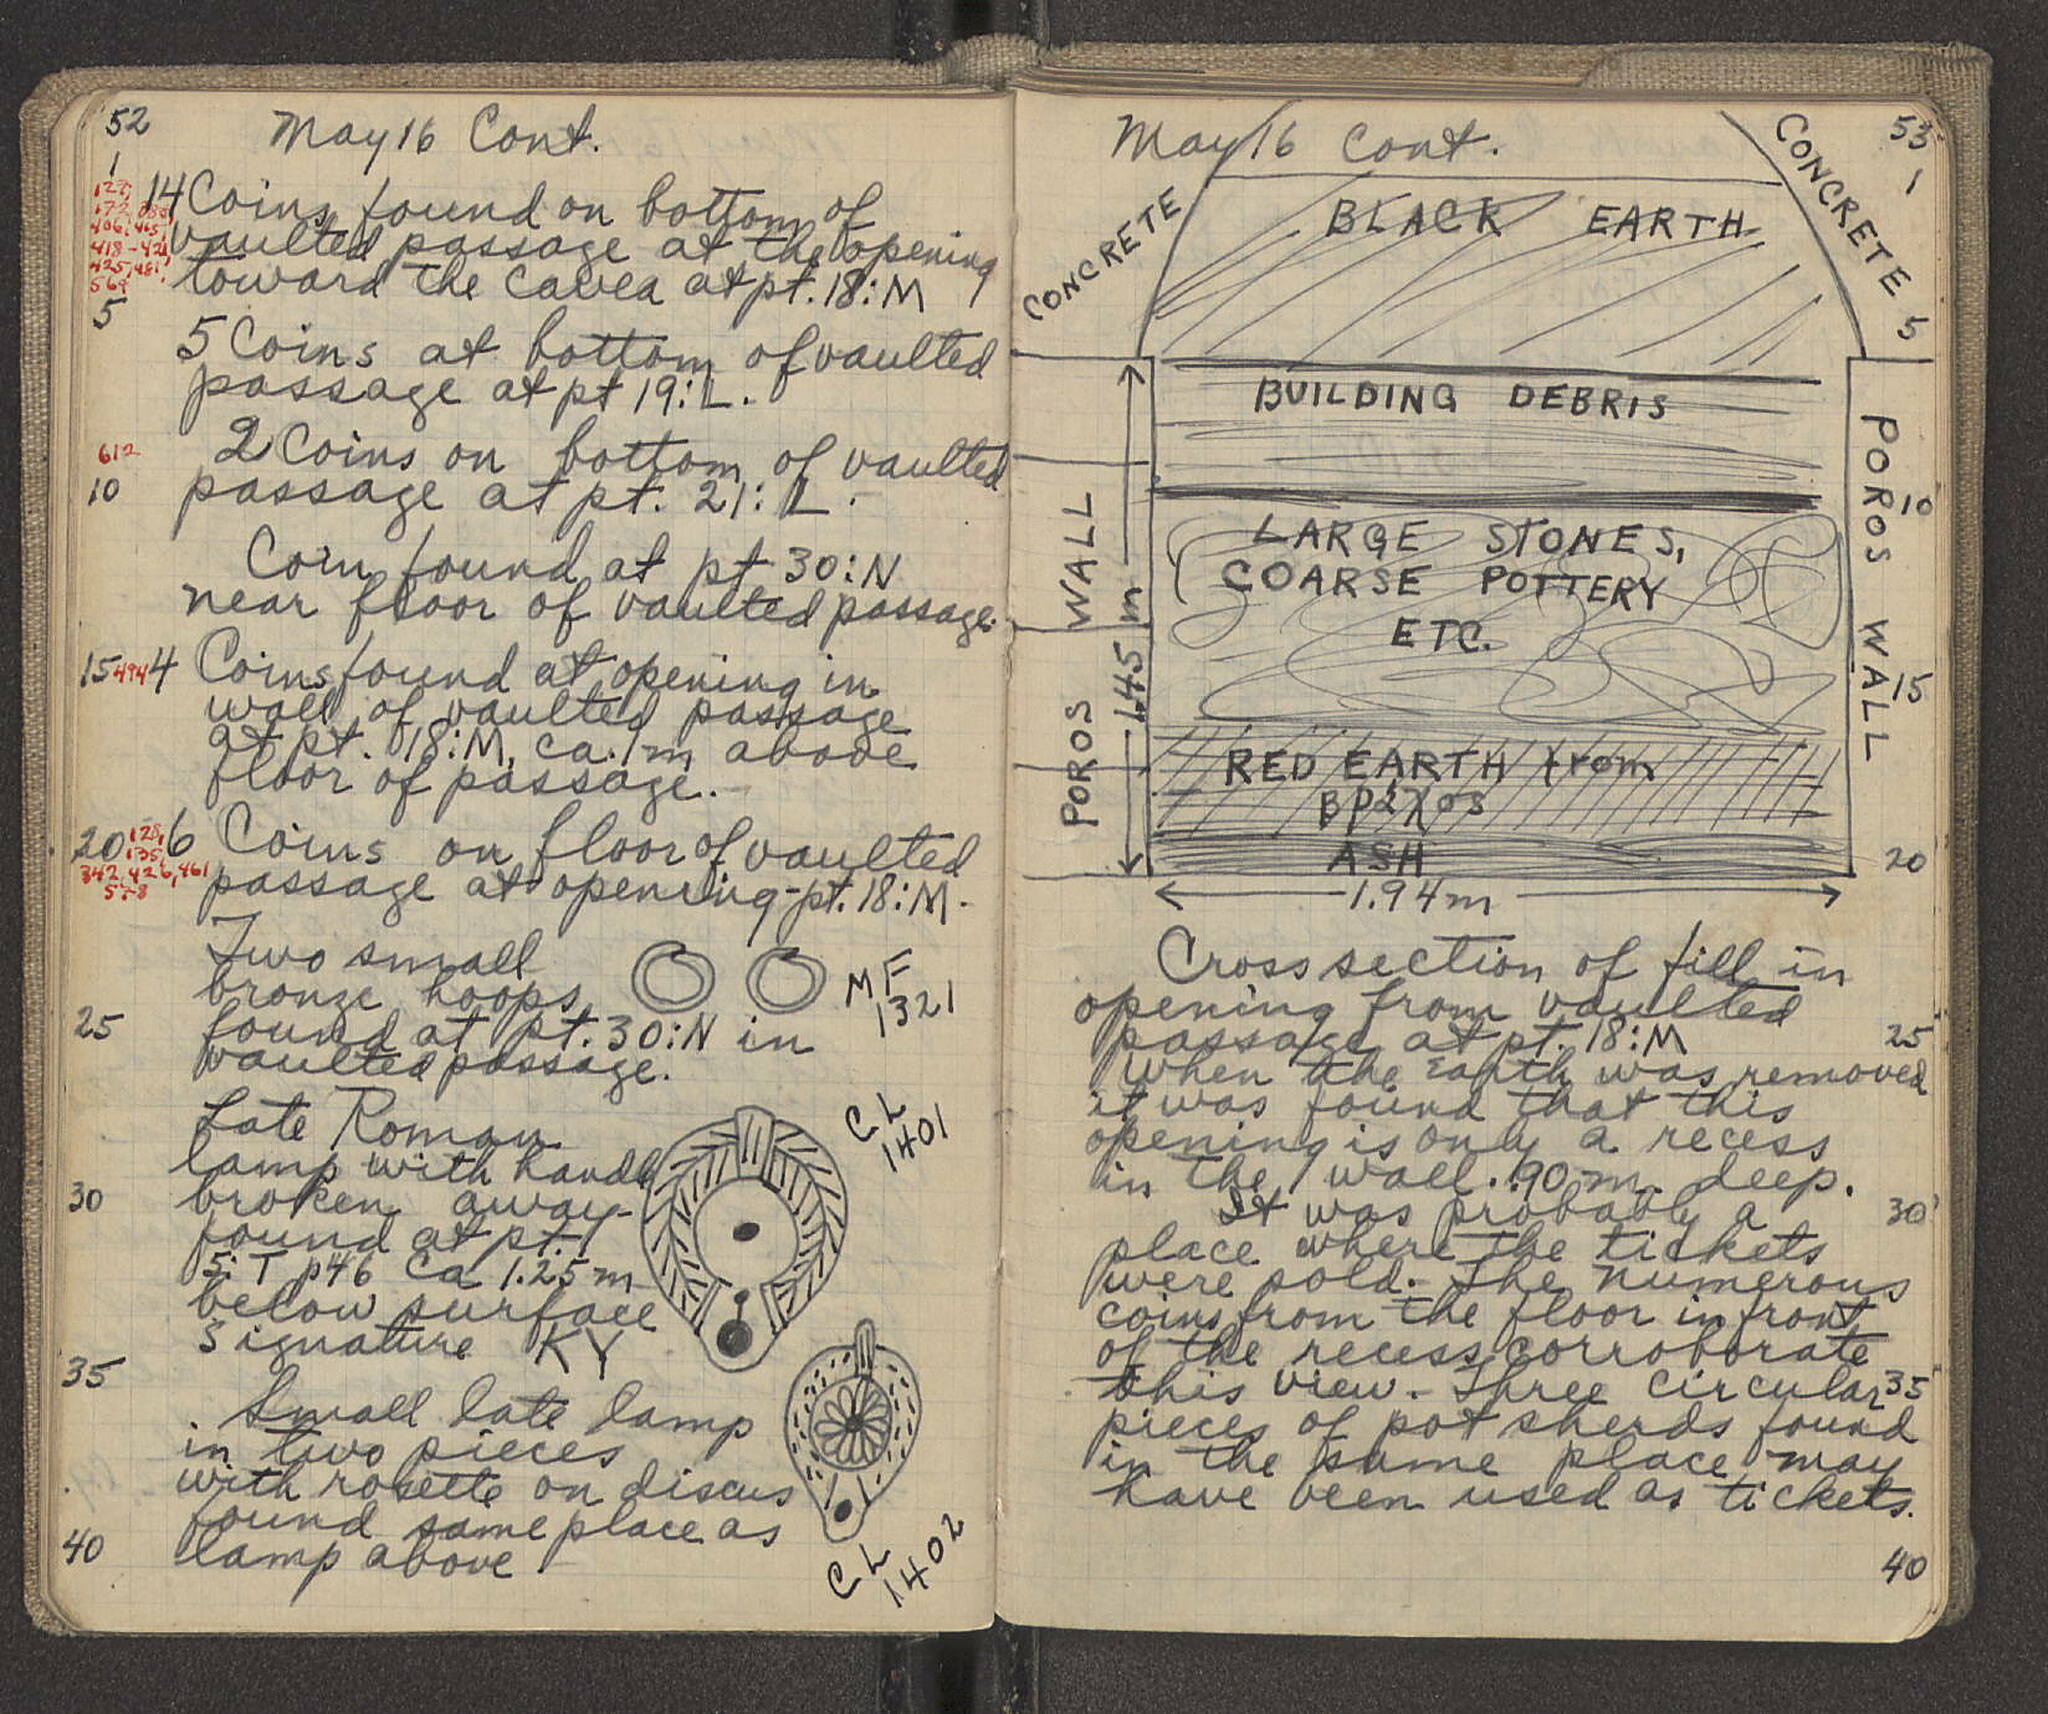 52
May 16 Cont.
1
14 Coins found on bottom of
vaulted passage at the opening
toward the cavea at pt. 18:M
5
5 Coins at bottom of vaulted
passage at pt 19:L.
612
2 Coins on bottom of vaulted
10
passage at pt. 21:L.
Coin found at pt 30:N
near floor of vaulted passage.
15 494 4 Coins found at opening in
wall of vaulted passage
at pt. 18:M, ca. 1m above
floor of passage.
20 128, 6 Coins on floor of vaulted
135
342, 426, 461
passage at opening-pt. 18:M.
Two small
bronze hoops
MF
1321
25
found at pt. 30:N in
vaulted passage.
Late Roman
lamp with handle
CL
1401
30
broken away-
found at pt.
5:T p46 Ca 1.25m
below surface
Signature KY
35
Small late lamp
in two pieces
with rosette on discus
found same place as
40
lamp above
CL
1402
53
May 16 Cont.
1
CONCRETE
CONCRETE
BLACK EARTH
5
BUILDING DEBRIS
POROS WALL
1.45 m
POROS WALL
10
LARGE STONES,
COARSE POTTERY
ETC.
15
RED EARTH from
ASH
20
1.94m
Cross section of fill in
opening from vaulted
passage at pt. 18:M
25
When the earth was removed
it was found that this
opening is only a recess
in the wall .90 m. deep.
It was probably a
30
place where the tickets
were sold. The numerous
coins from the floor in front
of the recess corroborate
this view. Three circular
35
pieces of pot sherds found
in the same place may
have been used as tickets.
40